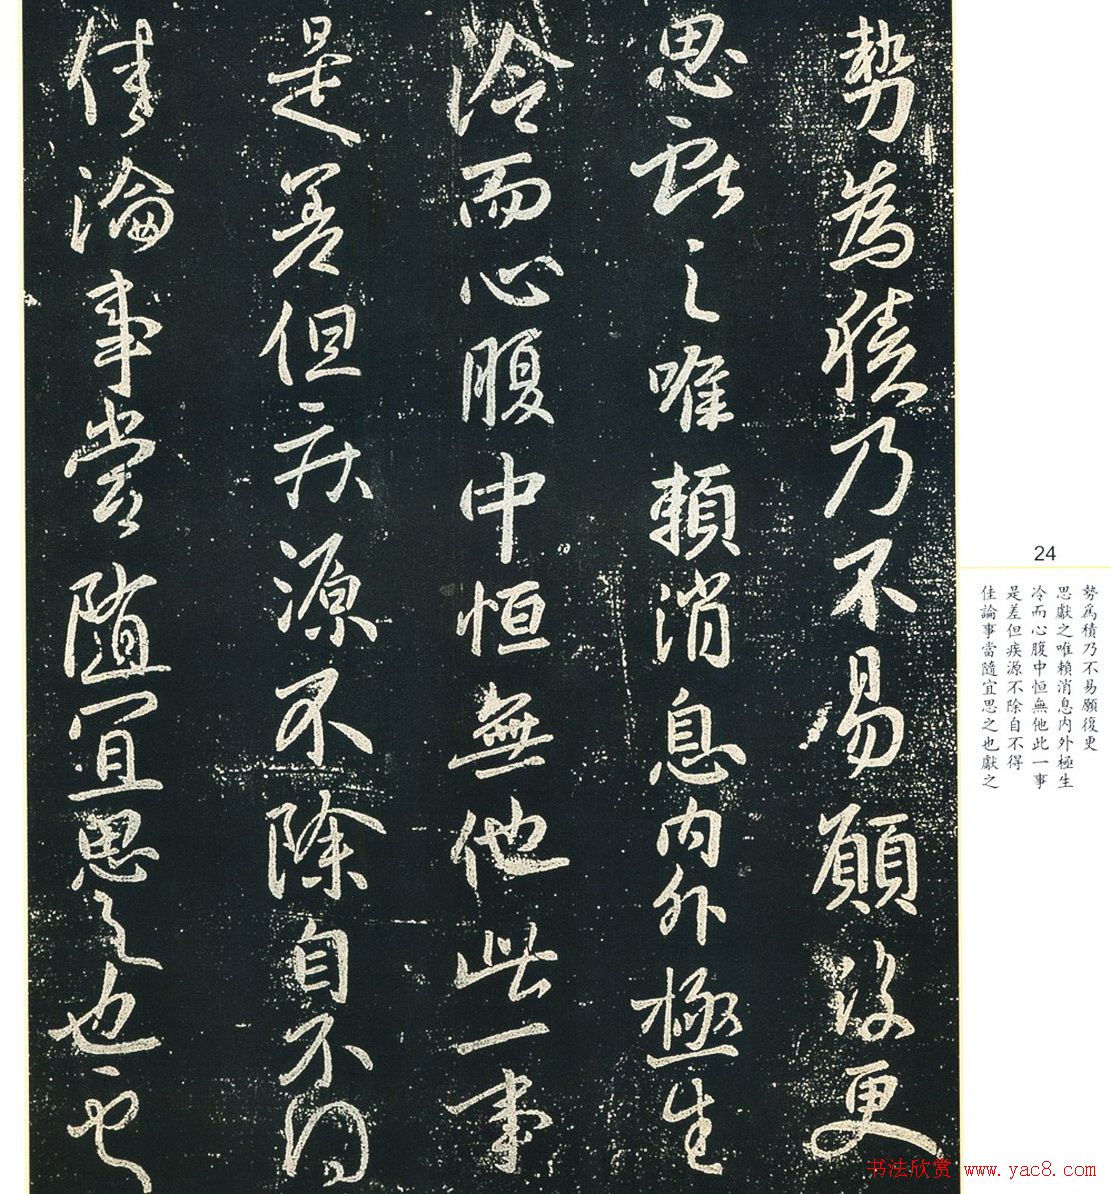 勢為積乃不易願復更
思獻之唯賴消息内外極生
冷而心腹中恒無他此一事
是差但疾源不除自不得
佳論事當隨宜思之也獻之
24
勢為積乃不易願復更
思獻之唯賴消息内外極生
冷而心腹中恒無他此一事
是差但疾源不除自不得
佳論事當隨宜思之也獻之
书法欣赏 www.yac8.com